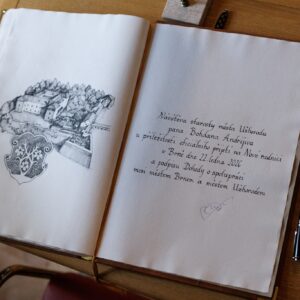 Návštěva starosty města Užhorodu
pana Bohdana Andrijiva
u příležitosti oficiálního přijetí na Nové radnici
v Brně dne 22. ledna
a podpisu Dohody o spolupráci
mezi městem Brnem a městem Užhorodem